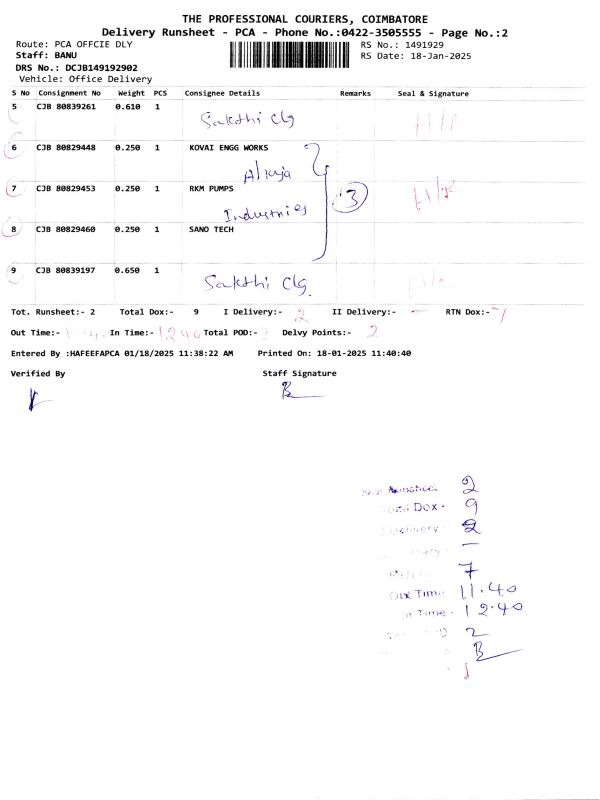 THE PROFESSIONAL COURIERS, COIMBATORE
Delivery Runsheet - PCA - Phone No.:0422-3505555 - Page No.:2
Route: PCA OFFCIE DLY RS No.: 1491929
Staff: BANU RS Date: 18-Jan-2025
DRS No.: DCJB149192902
Vehicle: Office Delivery
S No Consignment No Weight PCS Consignee Details Remarks Seal & Signature
5 CJB 80839261 0.610 1
Sakthi Clg
6 CJB 80829448 0.250 1 KOVAI ENGG WORKS
7 CJB 80829453 0.250 1 RKM PUMPS
3
Industries
8 CJB 80829460 0.250 1 SANO TECH
9 CJB 80839197 0.650 1
Sakthi Clg.
Tot. Runsheet:- 2 Total Dox:- 9 I Delivery:- 2 II Delivery:- - RTN Dox:- 7
Out Time:- In Time:- 1240 Total POD:- 2 Delvy Points:- 2
Entered By :HAFEEFAPCA 01/18/2025 11:38:22 AM Printed On: 18-01-2025 11:40:40
Verified By Staff Signature
B
Runsheet 2
Total Dox - 9
Delivery - 2
-
7
Out Time 11.40
In Time - 12.40
2
B